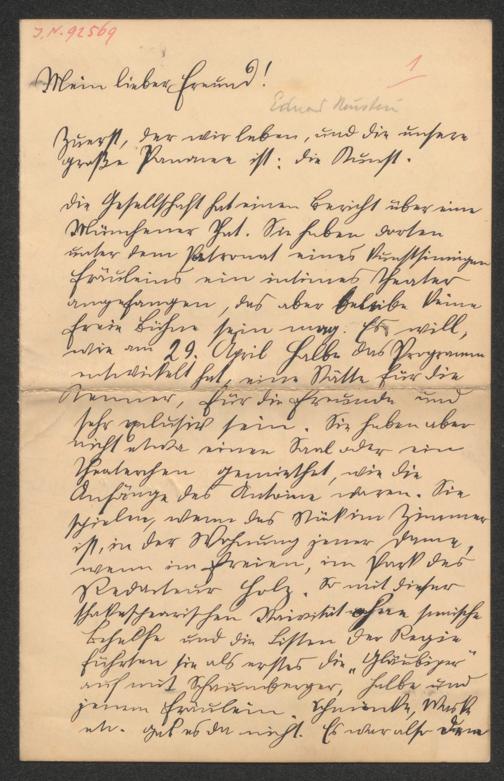 J.N. 92569
1
Mein lieber Freund!
Eduard
Zuerst, der wir leben, und die unsere
große Panacee ist: die Kunst.
Die Gesellschaft hat einen Bericht über eine
Münchener That. Sie haben dorten
unter dem Patronat eines kunstsinnigen
Fräuleins ein intimes Theater
angefangen, das aber beleibe keine
freie Bühne sein mag. Es will,
wie am 29. April Halbe das Programm
entwikelt hat, eine Stätte für die
Kenner, für die Freunde und
sehr exlusiv sein. Sie haben aber
nicht etwa einen Saal oder ein
Theaterchen gemiethet, wie die
Anfänge des Antoine waren. Sie
spielen, wenn das Stük im Zimmer
ist, in der Wohnung jener Dame,
wenn im Freien, im Park des
Redacteur Holz. So mit dieser
shakespearischen Naivität ohne scenische
Behelfe und die Listen der Regie
führten sie als erstes die „Gläubiger“
auf mit Schaumberger, Halbe und
jenem Fräulein. Schminke, Maske
etc. gab es da nicht. Es war also dem